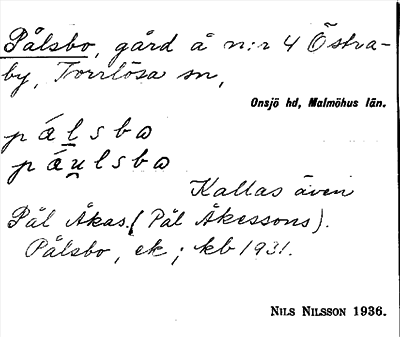 Pålsbo, gård å n:r 4 Östra-
by, Torrlösa sn,
Onsjö hd, Malmöhus län.
pálsbɷ
páu̯lsbɷ
Kallas även
Pål Åkas. (Pål Åkessons).
Pålsbo, ek; kb 1931.
NILS NILSSON 1936.